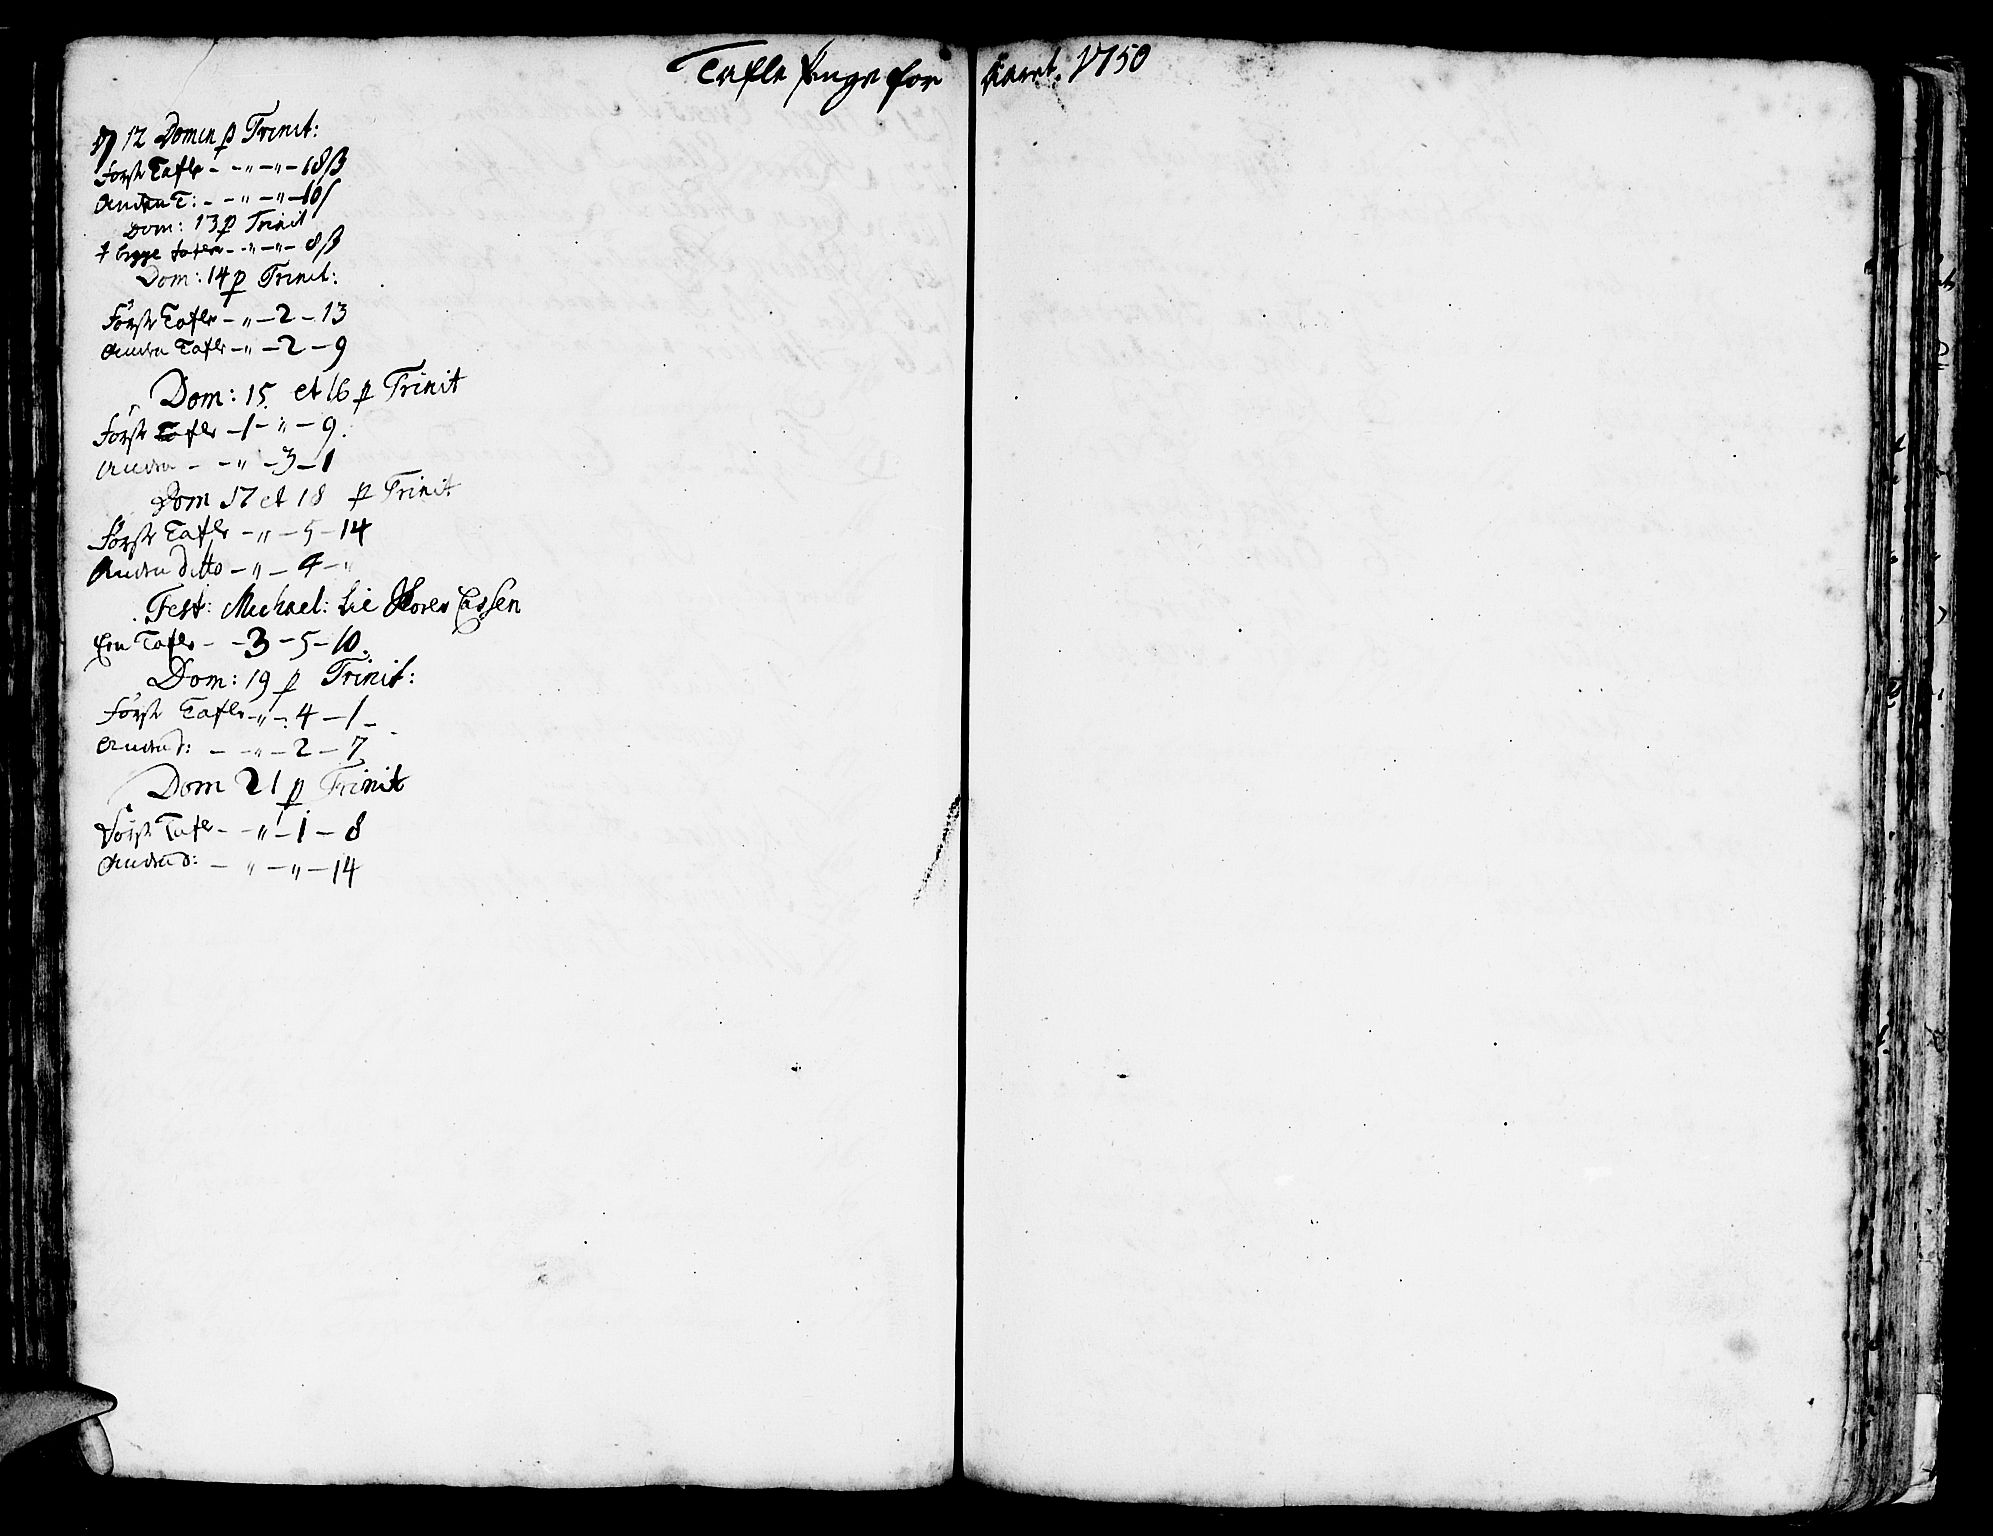 Tafle Penge for Aaret. 1750
12 Domin p Trinit:
Först Tafle - - „ - „ - 18 β
Anden T: - - „ - „ - 10 β
Dom: 13 p Trinit
begge tafler - „ - „ - 8 β
Dom: 14 p Trinit:
Först Tafle - „ - 2 - 13
Anden Tafle - „ - 2 - 9
Dom: 15. et 16 p Trinit
Först Tafle - 1 - „ - 9.
Anden - - „ - 3 - 1
Dom 17 et 18 p Trinit
Först Tafle - „ - 5 - 14
Anden ditto - „ - 4 - „
Fest: Michael:
Een Tafle - - 3 - 5 - 10.
Dom: 19 p Trinit:
Först Tafle - „ - 4 - 1 -
Anden d: - - „ - 2 - 7
Dom 21 p Trinit
Först Tafle - - „ - 1 - 8
Anden d: - „ - „ - 14